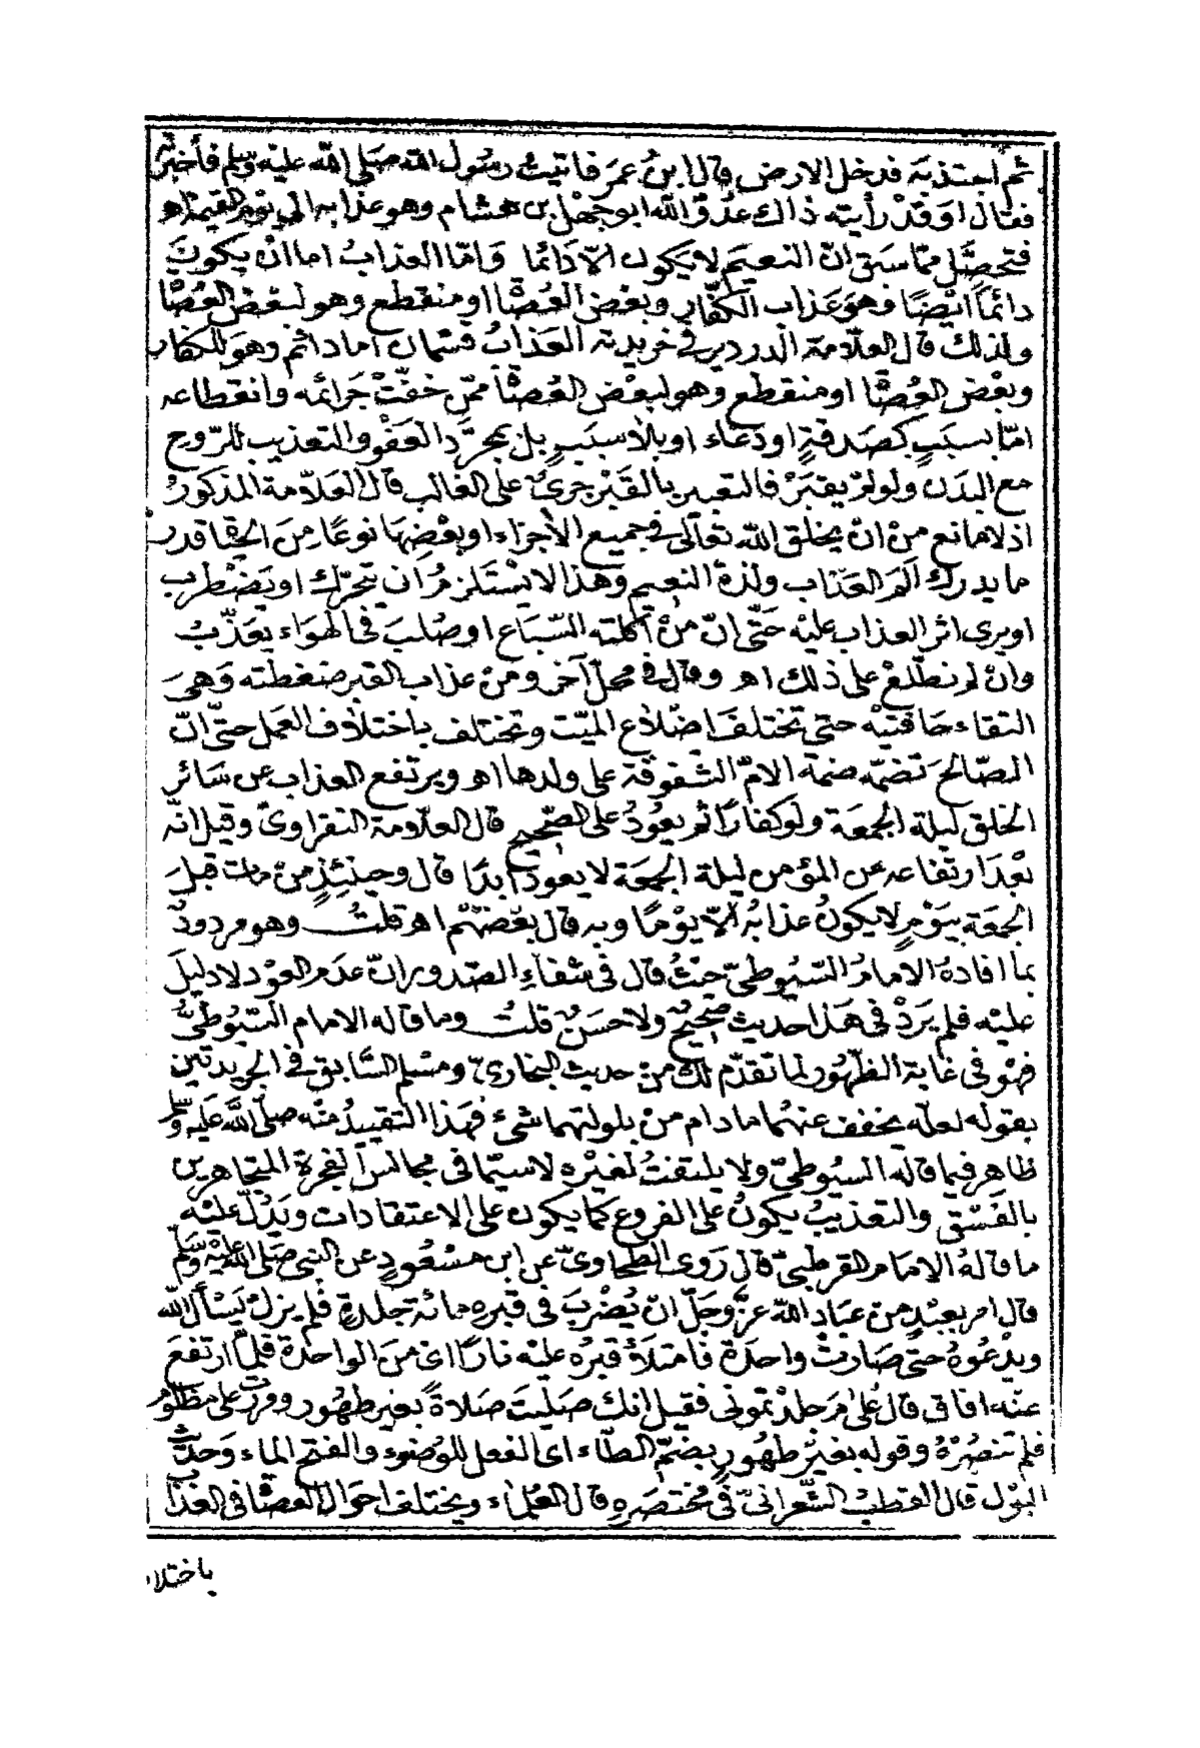 ثم اجتذبه فدخل الارض قال ابن عمر فاتيت رسول الله صلى الله عليه وسلم فأخبرته
فقال او قد رأيته ذاك عدوّ الله ابو جهل بن هشام وهو عذابه الى يوم القيمة اهـ
فتحصّل ممّا سبق انّ النعيم لا يكون الاّ دائما وامّا العذاب اما ان يكون
دائماً ايضًا وهو عذاب الكفّار وبعض العُصاة او منقطع وهو لبعض العصاة
ولذلك قال العلاّمة الدردير في خريدته العذاب قسمان اما دائم وهو للكفار
وبعْض العُصاة او منقطع وهو لبعْض العُصاة ممّن خفّتْ جَرائمه وانقطاعه
امّا بسبَبٍ كصَدقةٍ او دعاء او بلا سبَبٍ بل بمجرَّد العَفْو والتعذيب للرّوح
مع البدَن ولو لمْ يقبَرْ فالتعبير بالقَبْر جرىٌ على الغالب قال العلاّمة المذكورُ
اذ لا مانع منْ انْ يخلق الله تعالى في جميع الأجزاء او بعْضِهَا نوعًا مِنَ الحياة قدر
ما يدرك المَ العَذاب ولذة النعيم وهذا لا يسْتلزمُ أن يتحرّك او يَضْطرب
او يرى اثر العذاب عليْه حَتّى انّ منْ أكلته السّبَاع او صُلبَ في الهوَاء يعَذّبُ
وانْ لم نطّلعْ على ذلك اهـ وقال في محلّ آخر ومنْ عذاب القبر ضغطته وَهيَ
التقاء حَافتيْه حتى تختلفَ اضْلاع الميّت وتختلف باختلاف العمل حتّى انّ
الصّالحَ تضمّه ضمة الامّ الشفوقة على ولدها اهـ ويرتفع العذاب عن سَائر
الخلق ليلة الجمعَة ولو كفارًا ثم يعُودُ على الصّحِيح قال العلاّمة النفراوىّ وقيل انّه
بعْدَ ارتفاعه عن المؤمن ليلة الجمعَة لا يعود ابدًا قال وحينئذٍ منْ مات قبلَ
الجمعَة بيَوْمٍ لا يكونُ عذابُه الاّ يوْمًا وبه قال بعْضهُم اهـ قلتُ وهو مردودٌ
بما افادهُ الامامُ السّيُوطىّ حيْثُ قال فى شفاءِ الصّدور انّ عدم العوْد لا دليلَ
عليْه فلم يَردْ فى هَذا حديث صحِيحٌ ولا حسَنٌ قلتُ وما قاله الامام السّيُوطىُّ
فهْو فى غاية الظّهُور لما تقدّم لك منْ حديث البخارىّ ومسْلم السَّابق في الجريدتين
بقوله لعلّه يخفف عنهُما ما دام منْ بلولتهما شئ فهَذا التقييدُ منْه صلّى الله عَليْه وسلم
ظاهر فيما قاله السيُوطىّ ولا يلتفتُ لغيْره لا سيّما فى مجالس الفجرة المتجاهرين
بالفَسْق والتعذيبُ يكونُ على الفروع كما يكون على الاعتقادات ويَدُلّ عليْه
ما قالهُ الامام القرطبىّ قال رَوى الطحاوىّ عن ابن مسْعُودٍ عن النبى صَلى الله عليْه وسَلّم
قال امر بعبْدٍ من عبَادِ الله عزّ وجَلّ انْ يُضْرَبَ فى قبره مائة جَلدةٍ فلم يزلْ يَسْأل الله
ويدْعُوهُ حتى صَارتْ واحدَة فامتلأ قبرُه عليْه نارًا اى منَ الواحدة فلمّا ارتفعَ
عنْه افاق قال عُلىٰ مَ جلدْتمونى فقيل انك صَليْتَ صَلاةً بغير طهُور ومررْت على مظلُومٍ
فلم تنصُرْهُ وقوله بغيْر طهُورٍ بضمّ الطّاء اى الفعل للوُضوء والفتح الماء وَحديثُ
البوْل قال القطبُ الشّعرانىّ فى مُختصَره قال العُلماء ويختلف احوَال العصَاة فى العذاب
باختلا